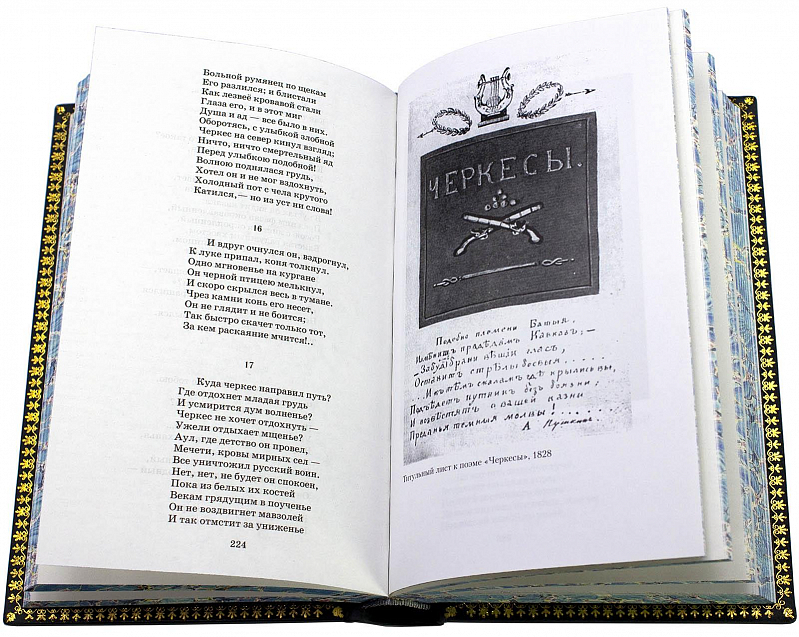 Вольной румянец по щекам
Его разлился; и блистали
Как лезвеё кровавой стали
Глаза его, и в этот миг
Душа и ад — все было в них.
Оборотясь, с улыбкой злобной
Черкес на север кинул взгляд;
Ничто, ничто смертельный яд
Перед улыбкою подобной!
Волною поднялася грудь,
Хотел он и не мог вздохнуть,
Холодный пот с чела крутого
Катился,— но из уст ни слова!
16
И вдруг очнулся он, вздрогнул,
К луке припал, коня толкнул.
Одно мгновенье на кургане
Он черной птицею мелькнул,
И скоро скрылся весь в тумане.
Чрез камни конь его несет,
Он не глядит и не боится;
Так быстро скачет только тот,
За кем раскаяние мчится!..
17
Куда черкес направил путь?
Где отдохнет младая грудь
И усмирится дум волненье?
Черкес не хочет отдохнуть —
Ужели отдыхает мщенье?
Аул, где детство он провел,
Мечети, кровы мирных сел —
Все уничтожил русский воин.
Нет, нет, не будет он спокоен,
Пока из белых их костей
Векам грядущим в поученье
Он не воздвигнет мавзолей
И так отмстит за униженье
224
ЧЕРКЕСЫ.
Подобно племени Батыя,
Измѣнитъ прадѣдамъ Кавказъ; —
Забудетъ брани вѣщій гласъ,
Оставитъ стрѣлы боевыя.....
...И къ тѣмъ скаламъ гдѣ крылись вы,
Подъѣдетъ путникъ безъ боязни,
И возвѣстятъ о вашей казни
Преданья темныя молвы!......
А. Пушкинъ.
Титульный лист к поэме «Черкесы», 1828